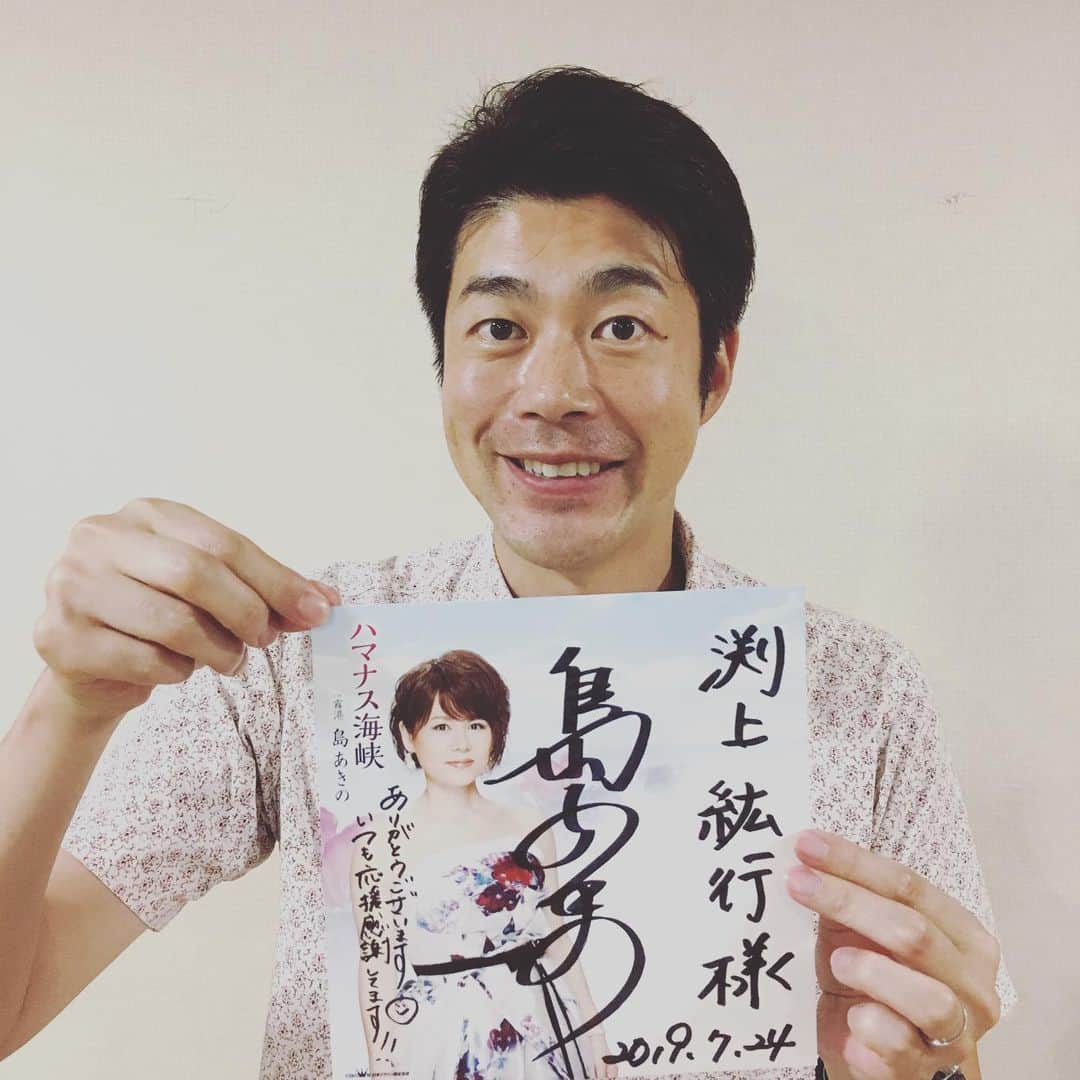 渕上紘行様
島あきの
2019.7.24
ハマナス海峡
島あきの
ありがとうございます
いつも応援感謝してます!!